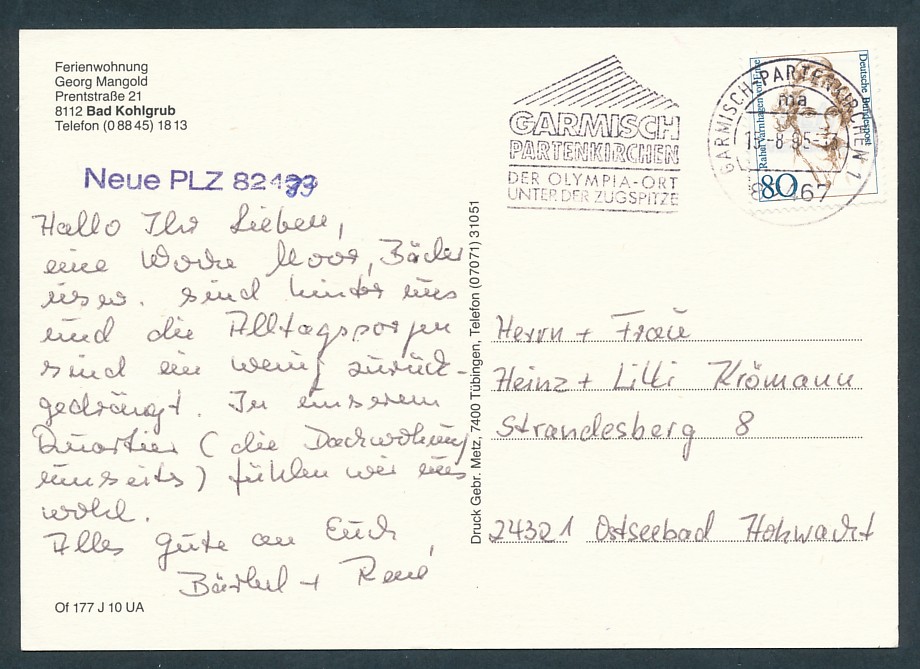 Ferienwohnung
Georg Mangold
Prentstraße 21
8112 Bad Kohlgrub
Telefon (0 88 45) 18 13
Neue PLZ 82433
Hallo Ihr Lieben,
eine Woche Moor, Bäder
usw. sind hinter uns
und die Alltagssorgen
sind ein wenig zurück-
gedrängt. In unserem
Quartier (die Dachwohnung
umseits) fühlen wir uns
wohl.
Alles Gute an Euch,
Bärbel + René
Of 177 J 10 UA
Druck Gebr. Metz, 7400 Tübingen, Telefon (07071) 31051
GARMISCH
PARTENKIRCHEN
DER OLYMPIA-ORT
UNTER DER ZUGSPITZE
GARMISCH-PARTENKIRCHEN 1
ma
15.-8.95-
82467
Deutsche Bundespost
Rahel Varnhagen von Ense
80
Herrn + Frau
Heinz + Lilli Krömann
Strandesberg 8
24321 Ostseebad Hohwacht